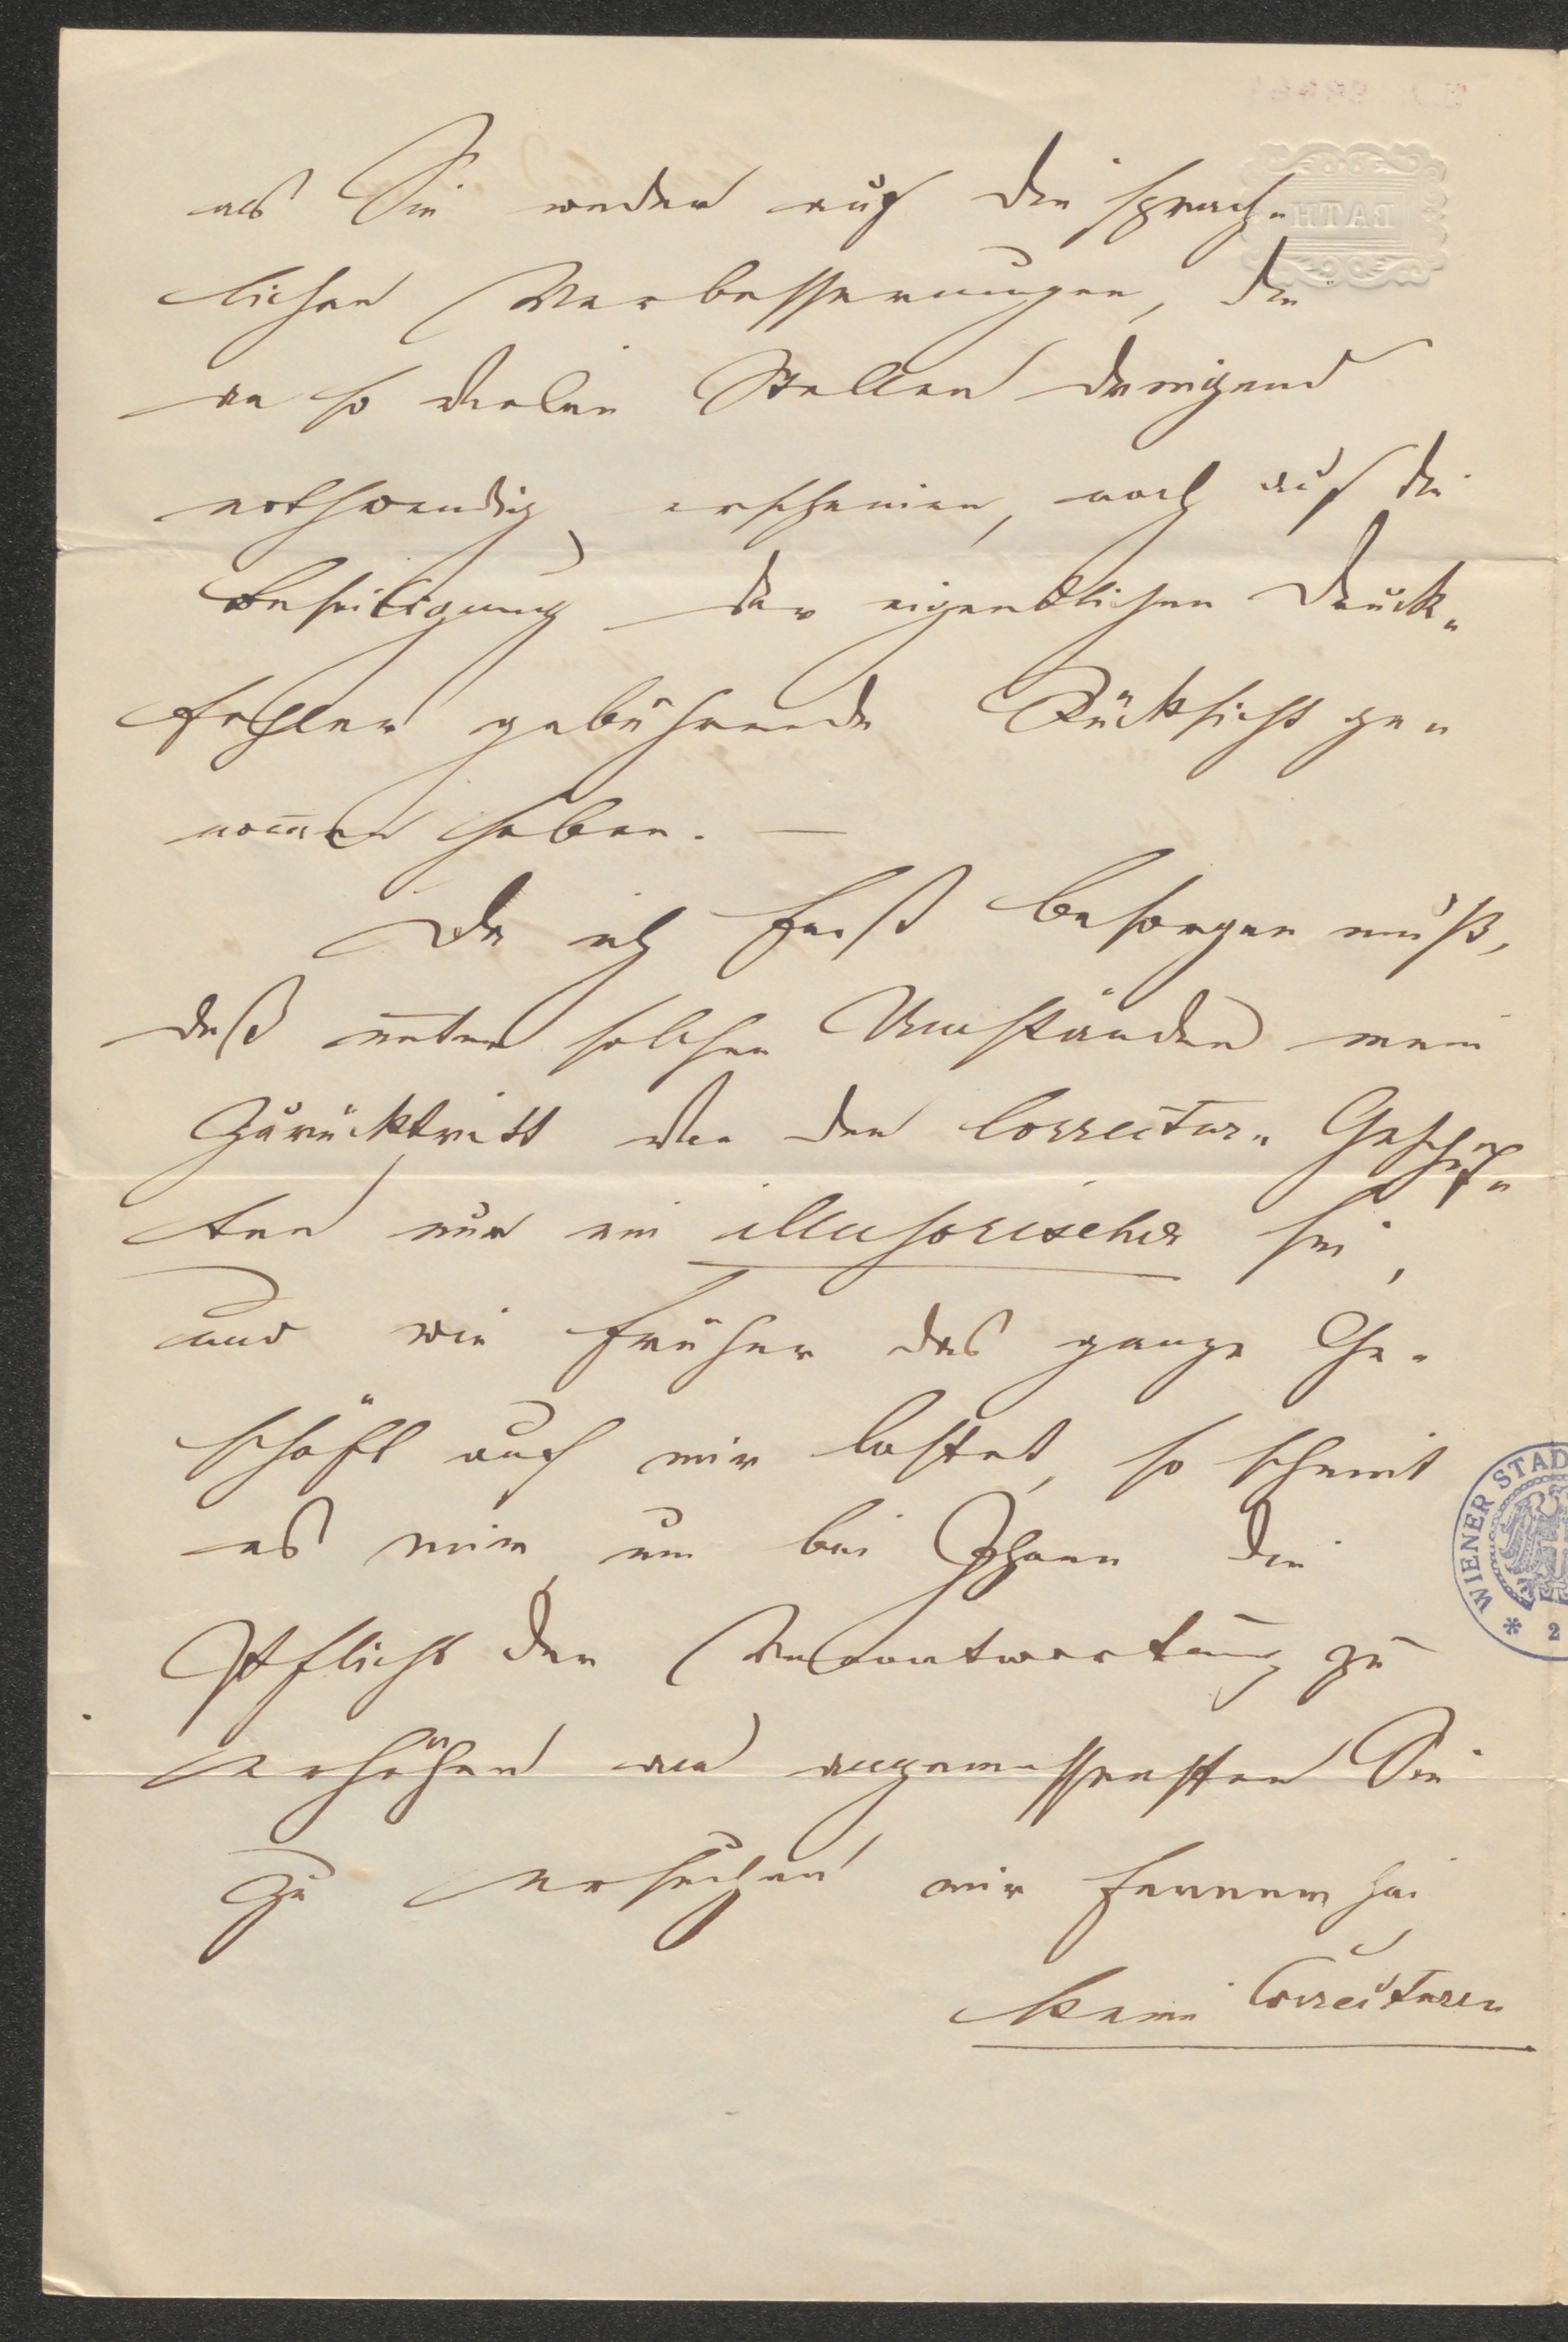 BATH
als Sie weder auf die sprach-
lichen Verbesserungen, die
an so vielen Stellen dringend
nothwendig erscheinen, noch auf die
Beseitigung der eigentlichen Druck-
fehler gebührende Rücksicht ge-
nom̄en haben. —
Da ich fast besorgen muß,
daß unter solchen Umständen mein
Zurücktritt von den Correctur-Geschäf-
ten nur ein illusorischer sei,
und wie früher das ganze Ge-
schäft auf mir lastet, so scheint
es mir, um bei Ihnen die
Pflicht der Verantwortung zu
erhöhen am angemessensten Sie
zu ersuchen mir fernerhin
keine Correcturen
WIENER STAD
* 2